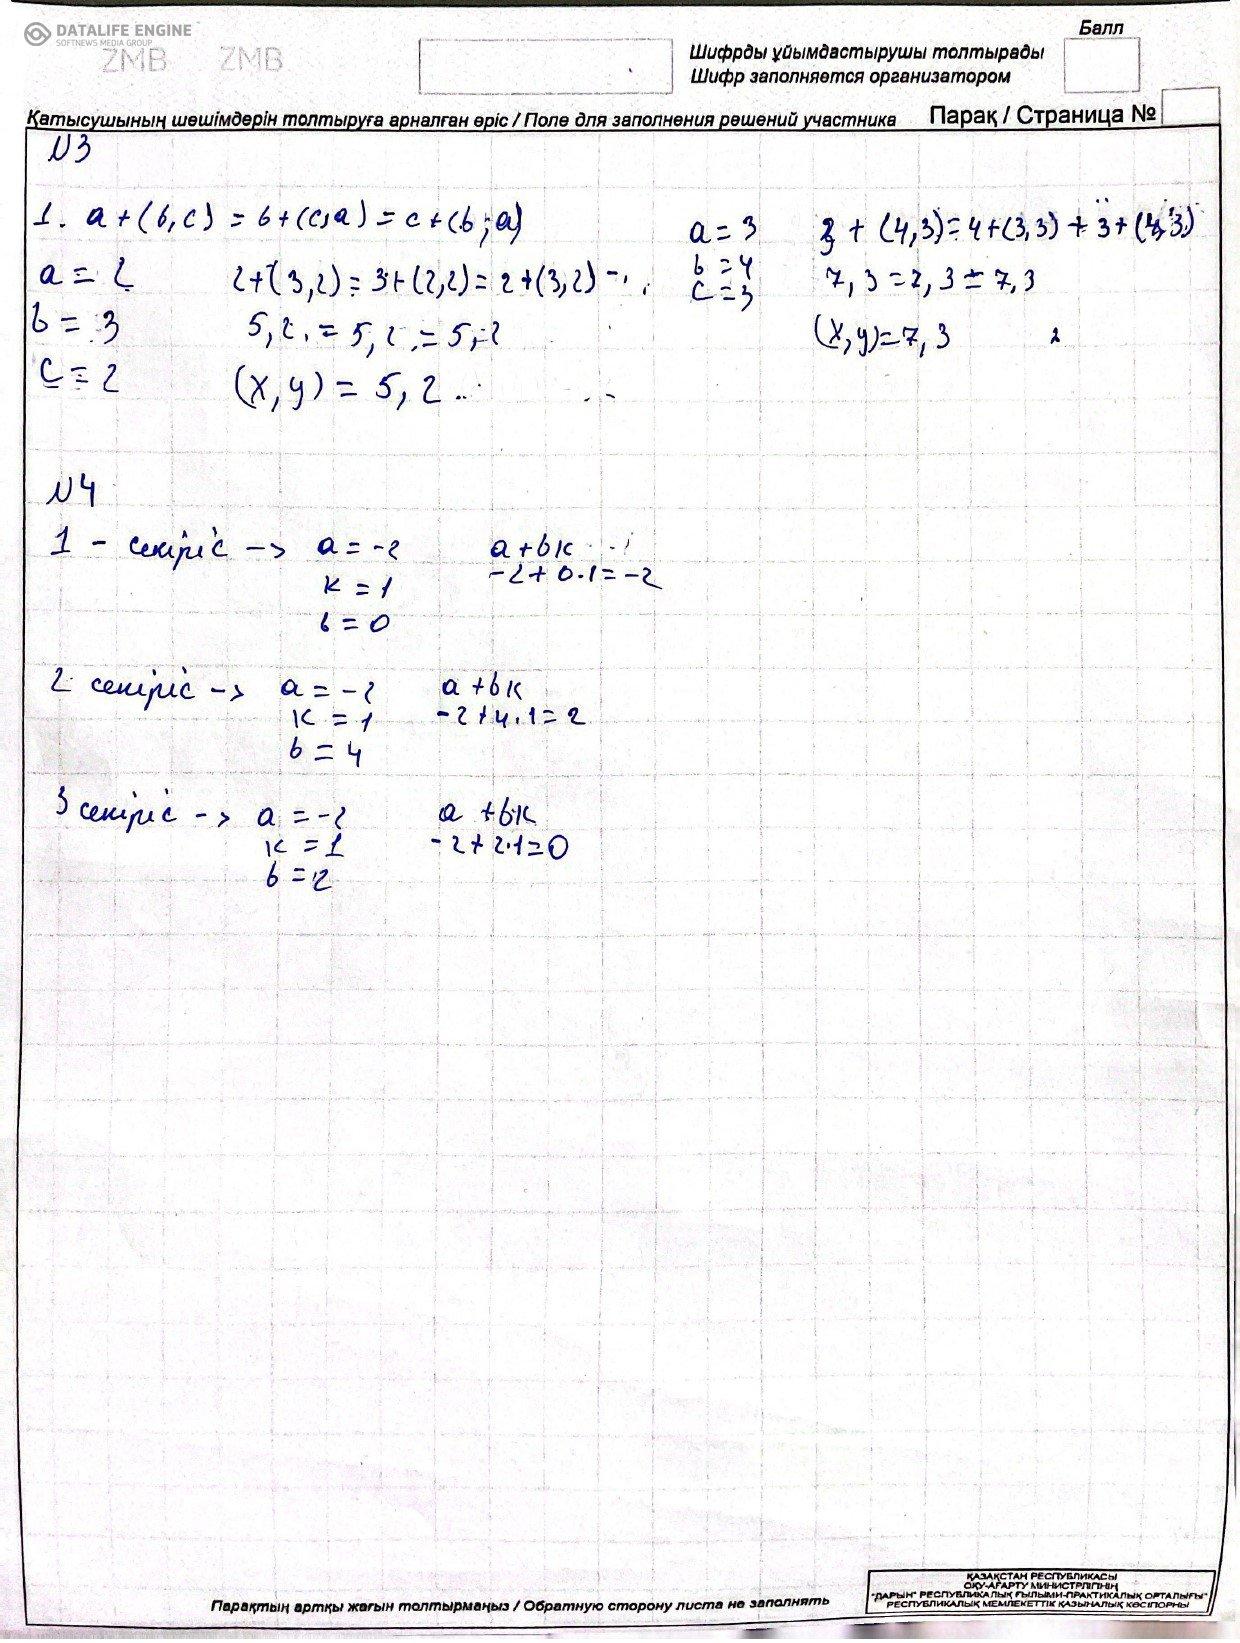 DATALIFE ENGINE
SOFTNEWS MEDIA GROUP
ZMB ZMB
Балл
Шифрды ұйымдастырушы толтырады
Шифр заполняется организатором
Қатысушының шешімдерін толтыруға арналған өріс / Поле для заполнения решений участника
Парақ / Страница №
№3
1. a + (b, c) = b + (c, a) = c + (b; a)
a = 2
2 + (3, 2) = 3 + (2, 2) = 2 + (3, 2)
b = 3
5, 2 = 5, 2 = 5, 2
c = 2
(x, y) = 5, 2
a = 3
3 + (4,3) = 4 + (3,3) + 3 + (4,3)
b = 4
7, 3 = 7, 3 = 7, 3
c = 3
(x, y) = 7, 3
№4
1 - секіріс -> a = -2
a + bк
к = 1
-2 + 0·1 = -2
b = 0
2 секіріс -> a = -2
a + bк
к = 1
-2 + 4·1 = 2
b = 4
3 секіріс -> a = -2
a + bк
к = 1
-2 + 2·1 = 0
b = 2
Парақтың артқы жағын толтырмаңыз / Обратную сторону листа не заполнять
ҚАЗАҚСТАН РЕСПУБЛИКАСЫ
ОҚУ-АҒАРТУ МИНИСТРЛІГІНІҢ
"ДАРЫН" РЕСПУБЛИКАЛЫҚ ҒЫЛЫМИ-ПРАКТИКАЛЫҚ ОРТАЛЫҒЫ"
РЕСПУБЛИКАЛЫҚ МЕМЛЕКЕТТІК ҚАЗЫНАЛЫҚ КӘСІПОРНЫ